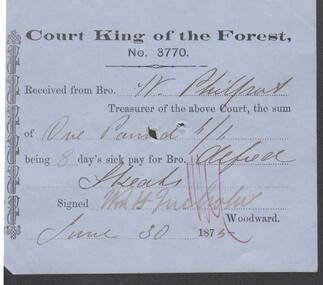 Court King of the Forest,
No. 3770.
Received from Bro. W. Philpot
Treasurer of the above Court, the sum
of One Pound
being 8 day's sick pay for Bro. Alfred
Skeats
Signed Wm H
Woodward.
June 30 1875